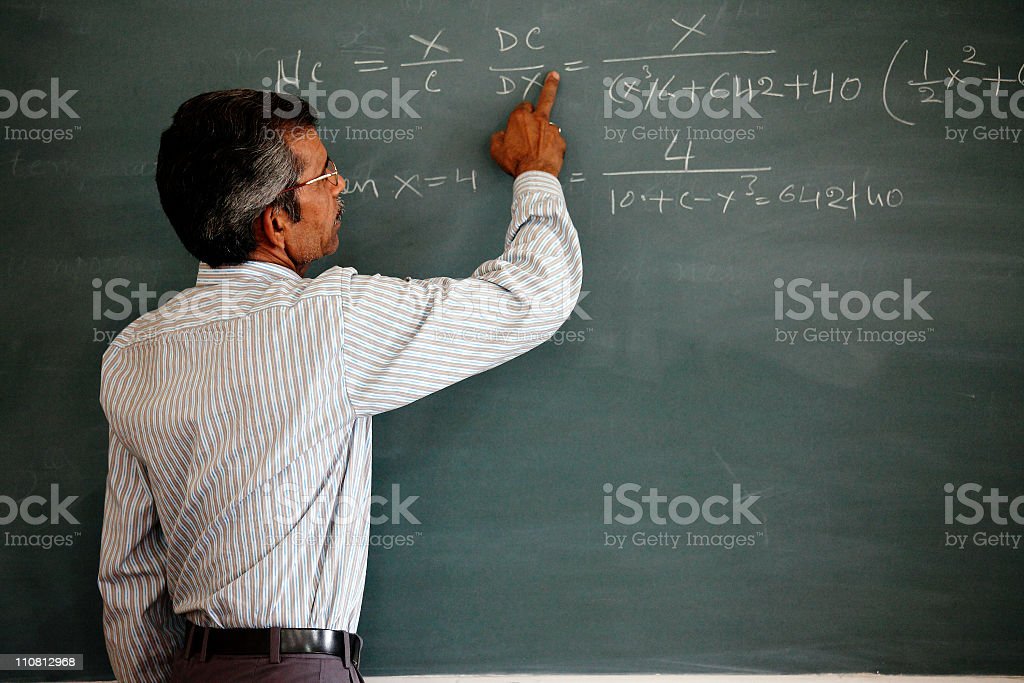 Nc = X/C DC/DX = X/((x³)6+642+40 (1/2 x² +
x=4 = 4/(10.+C-x³=642+40
iStock
by Getty Images™
iStock
by Getty Images™
iStock
by Getty Images™
iStock
by Getty Images™
iStock
by Getty Images™
iStock
by Getty Images™
iStock
by Getty Images™
iStock
by Getty Images™
iStock
by Getty Images™
iStock
by Getty Images™
iStock
by Getty Images™
110812968